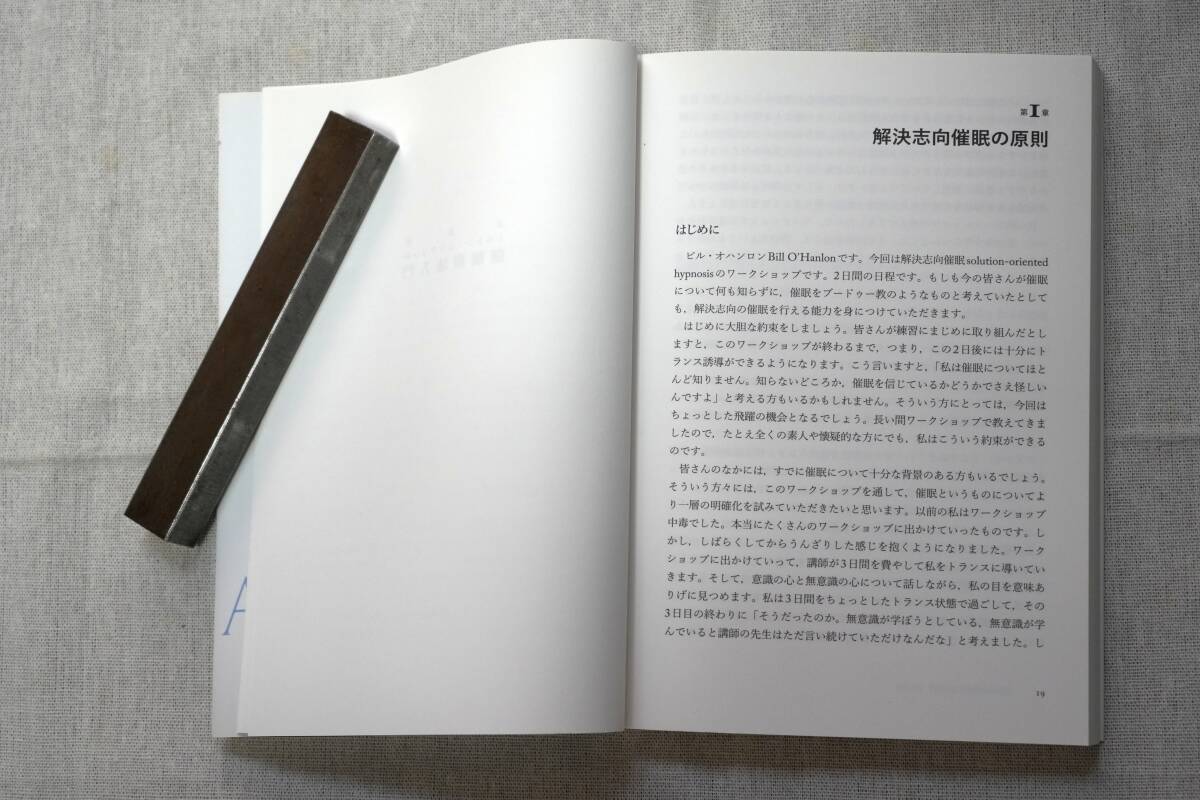 第1章
解決志向催眠の原則
はじめに
ビル・オハンロンBill O'Hanlonです。今回は解決志向催眠solution-oriented
hypnosisのワークショップです。2日間の日程です。もしも今の皆さんが催眠
について何も知らずに，催眠をブードゥー教のようなものと考えていたとして
も，解決志向の催眠を行える能力を身につけていただきます。
はじめに大胆な約束をしましょう。皆さんが練習にまじめに取り組んだとし
ますと，このワークショップが終わるまで，つまり，この2日後には十分にト
ランス誘導ができるようになります。こう言いますと，「私は催眠についてほと
んど知りません。知らないどころか，催眠を信じているかどうかでさえ怪しい
んですよ」と考える方もいるかもしれません。そういう方にとっては，今回は
ちょっとした飛躍の機会となるでしょう。長い間ワークショップで教えてきま
したので，たとえ全くの素人や懐疑的な方にでも，私はこういう約束ができる
のです。
皆さんのなかには，すでに催眠について十分な背景のある方もいるでしょう。
そういう方々には，このワークショップを通して，催眠というものについてよ
り一層の明確化を試みていただきたいと思います。以前の私はワークショップ
中毒でした。本当にたくさんのワークショップに出かけていったものです。し
かし，しばらくしてからうんざりした感じを抱くようになりました。ワーク
ショップに出かけていって，講師が3日間を費やして私をトランスに導いてい
きます。そして，意識の心と無意識の心について話しながら，私の目を意味あ
りげに見つめます。私は3日間をちょっとしたトランス状態で過ごして，その
3日目の終わりに「そうだったのか。無意識が学ぼうとしている，無意識が学
んでいると講師の先生はただ言い続けていただけなんだな」と考えました。し
19